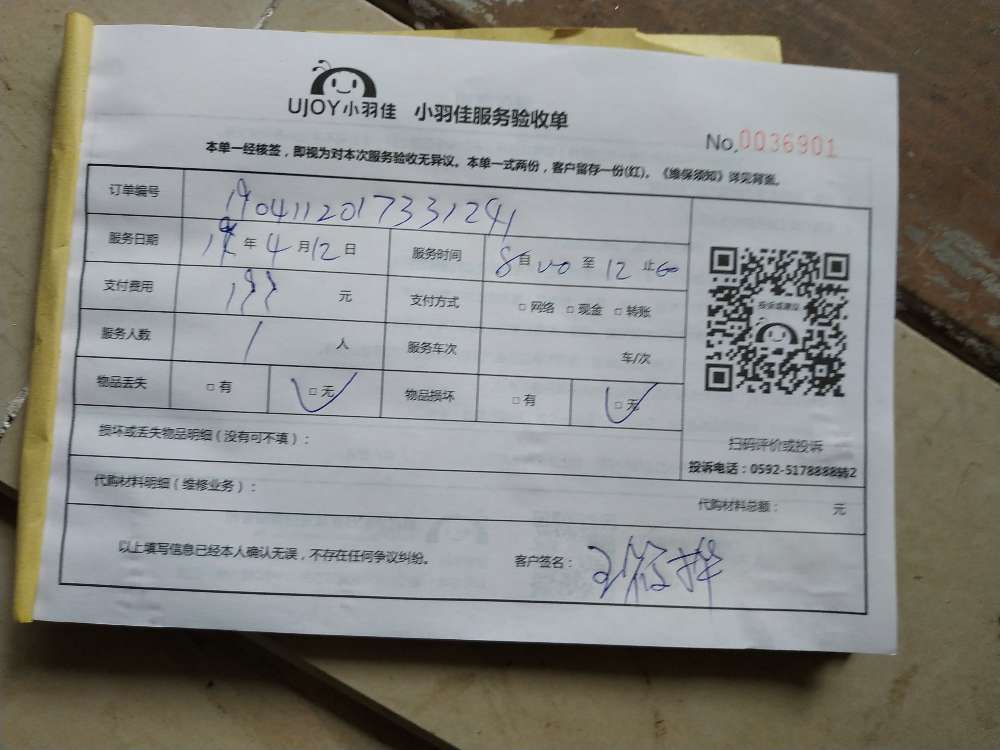 UJOY小羽佳 小羽佳服务验收单
No.0036901
本单一经核签，即视为对本次服务验收无异议。本单一式两份，客户留存一份(红)。《维保须知》详见背面。
订单编号 1904112017331291
服务日期 19年4月12日 服务时间 8自00至12止00
支付费用 199元 支付方式 □网络 □现金 □转账
服务人数 1人 服务车次 车/次
物品丢失 □有 □无 物品损坏 □有 □无
投诉或建议
扫码评价或投诉
投诉电话：0592-5178888转2
损坏或丢失物品明细（没有可不填）：
代购材料明细（维修业务）：
代购材料总额： 元
以上填写信息已经本人确认无误，不存在任何争议纠纷。 客户签名：